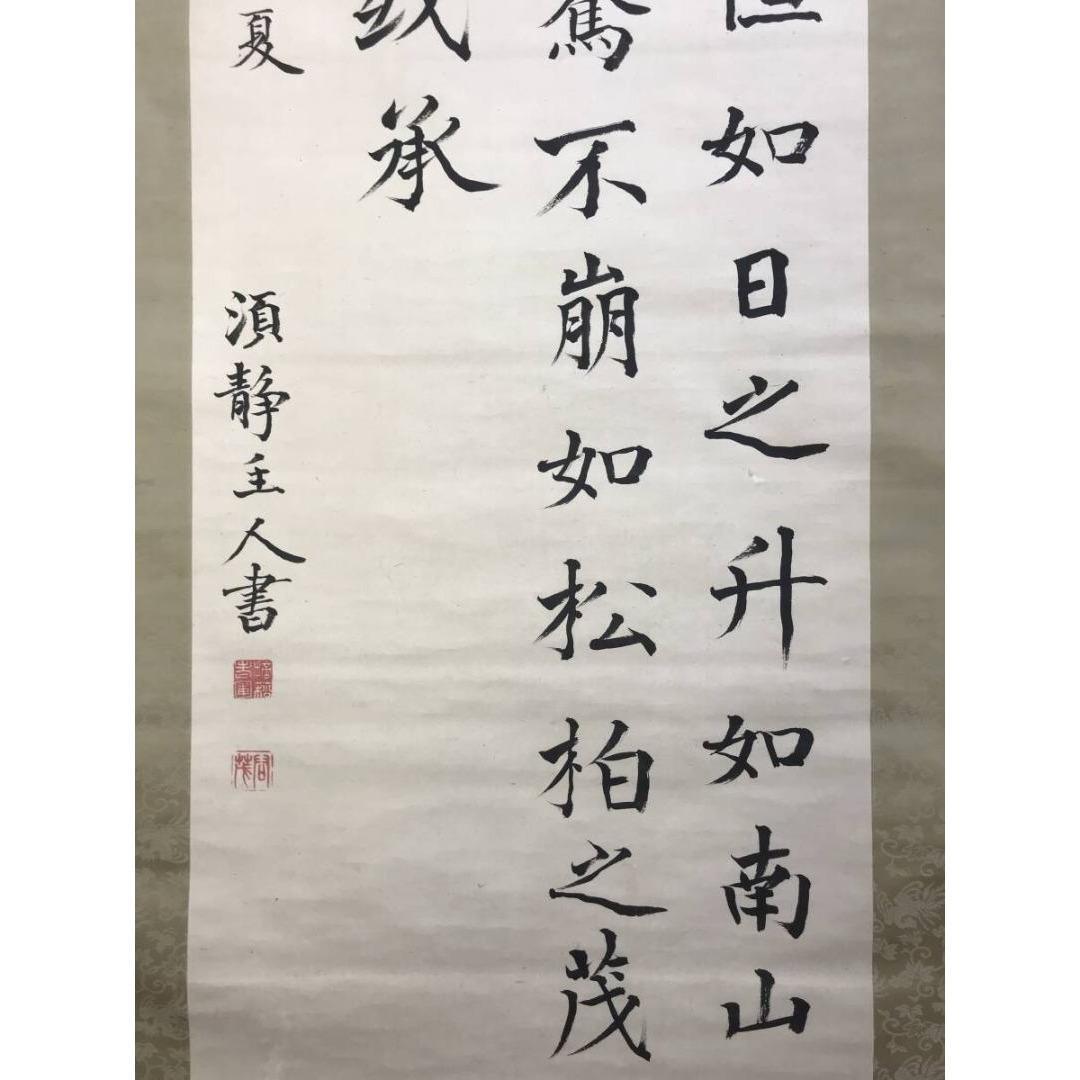 恒如日之升如南山
騫不崩如松柏之茂
或承
夏 須静主人書